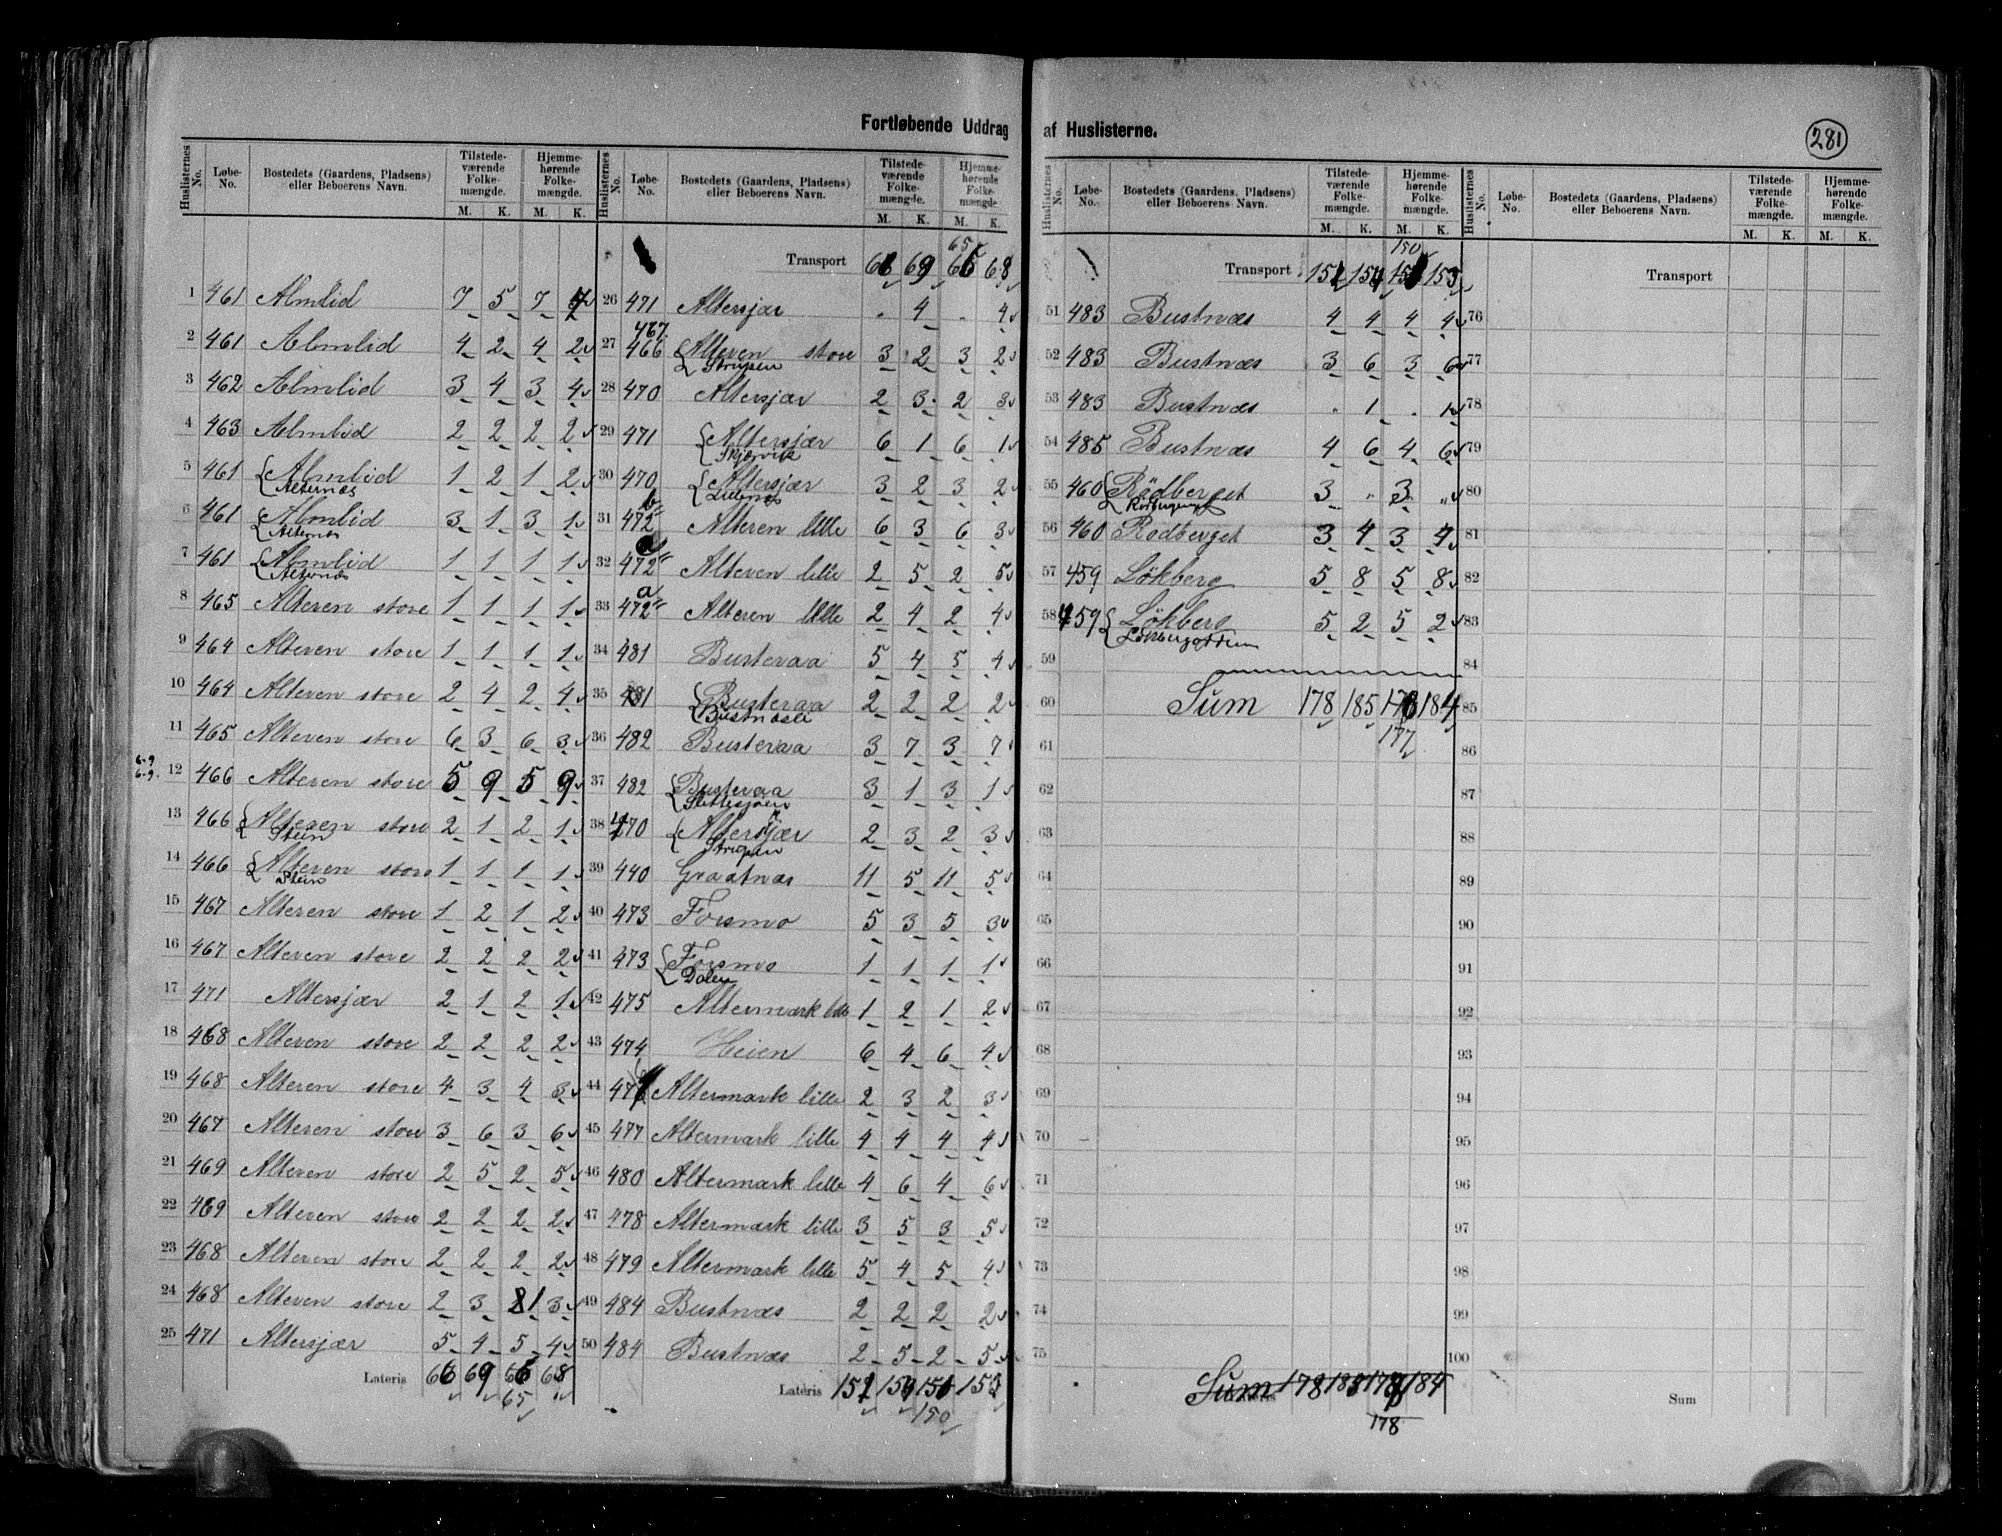 Fortløbende Uddrag af Huslisterne.
281
Huslisternes No. Løbe-No. Bostedets (Gaardens, Pladsens) eller Beboerens Navn. Tilstede-værende Folke-mængde. M. K. Hjemme-hørende Folke-mængde. M. K.
1 461 Almlid 7 5 7 4
2 461 Almlid 4 2 4 2
3 462 Almlid 3 4 3 4
4 463 Almlid 2 2 2 2
5 461 Almlid 1 2 1 2
Alternæs
6 461 Almlid 3 1 3 1
Alternæs
7 461 Almlid 1 1 1 1
Alternæs
8 465 Alteren store 1 1 1 1
9 464 Alteren store 1 1 1 1
10 464 Alteren store 2 4 2 4
11 465 Alteren store 6 3 6 3
6-9
6-9.
12 466 Alteren store 5 9 5 9
13 466 Alteren store 2 1 2 1
Stein
14 466 Alteren store 1 1 1 1
Stein
15 467 Alteren store 1 2 1 2
16 467 Alteren store 2 2 2 2
17 471 Altersjær 2 1 2 1
18 468 Alteren store 2 2 2 2
19 468 Alteren store 4 3 4 3
20 467 Alteren store 3 6 3 6
21 469 Alteren store 2 5 2 5
22 469 Alteren store 2 2 2 2
23 468 Alteren store 2 2 2 2
24 468 Alteren store 2 3 1 3
25 471 Altersjær 5 4 5 4
Lateris 66 69 66 68
65
Huslisternes No. Løbe-No. Bostedets (Gaardens, Pladsens) eller Beboerens Navn. Tilstede-værende Folke-mængde. M. K. Hjemme-hørende Folke-mængde M. K.
65
Transport 66 69 66 68
26 471 Altersjær . 4 . 4
467.
27 466 Alteren store 3 2 3 2
Strupen
28 470 Altersjær 2 3 2 3
29 471 Altersjær 6 1 6 1
Skjærvik
30 470 Altersjær 3 2 3 2
Lillenæs
b
31 472 Alteren lille 6 3 6 3
32 472 Alteren lille 2 5 2 5
a
33 472 Alteren lille 2 4 2 4
34 481 Busteraa 5 4 5 4
35 481 Busteraa 2 2 2 2
Bustnæsli
36 482 Busteraa 3 7 3 7
37 482 Busteraa 3 1 3 1
38 470 Altersjær 2 3 2 3
Strupen
39 440 Graatnæs 11 5 11 5
40 473 Forsmo 5 3 5 3
41 473 Forsmo 1 1 1 1
Dalen
42 475 Altermark lille 1 2 1 2
43 474 Heien 6 4 6 4
44 476 Altermark lille 2 3 2 3
45 477 Altermark lille 4 4 4 4
46 480 Altermark lille 4 6 4 6
47 478 Altermark lille 3 5 3 5
48 479 Altermark lille 5 4 5 4
49 484 Bustnæs 2 2 2 2
50 484 Bustnæs 2 5 2 5
Lateris 151 154 151 153
150
Huslisternes No. Løbe-No. Bostedets (Gaardens, Pladsens) eller Beboerens Navn. Tilstede-værende Folke-mængde. M. K. Hjemme-hørende Folke-mængde. M. K.
150
Transport 151 154 151 153
51 483 Bustnæs 4 4 4 4
52 483 Bustnæs 3 6 3 6
53 483 Bustnæs . 1 . 1
54 485 Bustnæs 4 6 4 6
55 460 Rödberget 3 " 3 "
56 460 Rödberget 3 4 3 4
57 459 Lökberg 5 8 5 8
58 459 Lökberg 5 2 5 2
59
60 Sum 178 185 178 184
177
61
62
63
64
65
66
67
68
69
70
71
72
73
74
75
Sum 178 185 178 184
178
Huslisternes No. Løbe-No. Bostedets (Gaardens, Pladsens) eller Beboerens Navn. Tilstede-værende Folke-mængde. M. K. Hjemme-hørende Folke-mængde M. K.
Transport
76
77
78
79
80
81
82
83
84
85
86
87
88
89
90
91
92
93
94
95
96
97
98
99
100
Sum